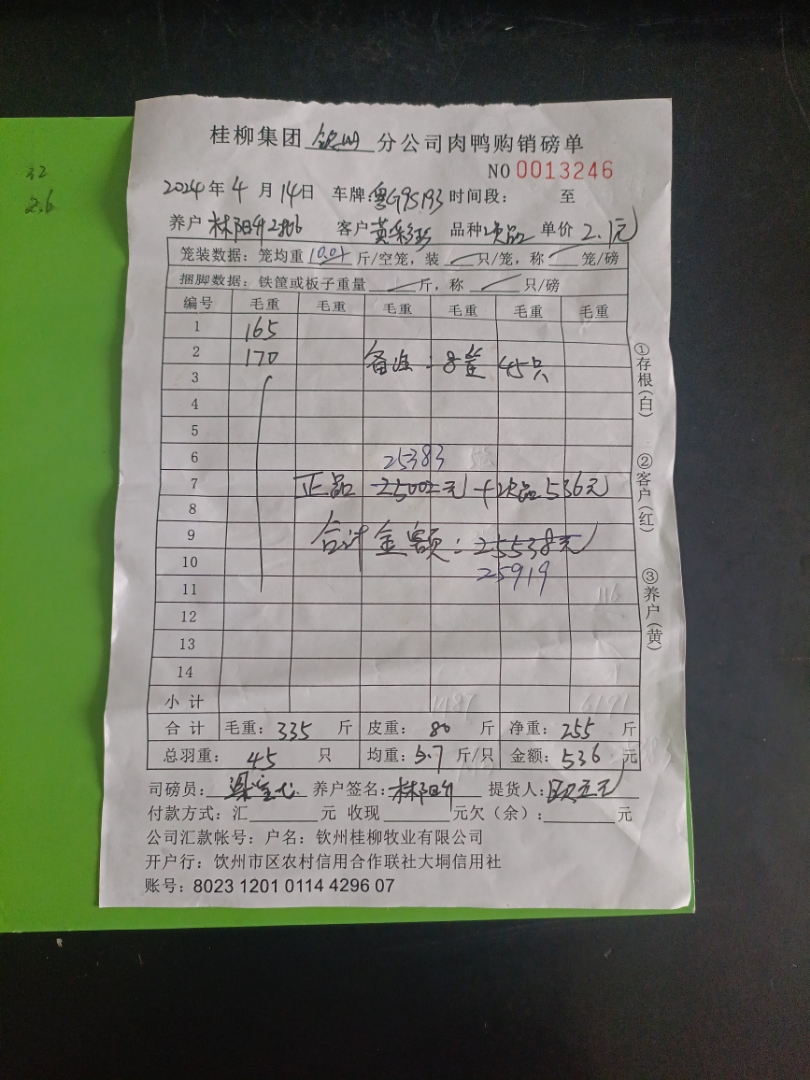 32
2.6
桂柳集团 钦州 分公司肉鸭购销磅单
NO 0013246
2024年 4 月 14日 车牌:粤G95193 时间段: 至
养户 林阳升2866 客户 黄 品种 次品 单价 2.1元
笼装数据:笼均重 10.0 斤/空笼,装 只/笼,称 笼/磅
捆脚数据:铁筐或板子重量 斤,称 只/磅
编号 毛重 毛重 毛重 毛重 毛重 毛重
1 165
2 170 备注:8筐 45只
3
4
5
6 25383
7 正品 25002元+次品536元
8
9 合计金额:25538元
10 25919
11 116
12
13
14
小计 6191
合计 毛重:335 斤 皮重:80 斤 净重:255 斤
总羽重:45 只 均重:5.7 斤/只 金额:536 元
司磅员: 养户签名:林阳升 提货人:
付款方式:汇 元 收现 元欠(余): 元
公司汇款帐号:户名:钦州桂柳牧业有限公司
开户行:饮州市区农村信用合作联社大垌信用社
账号:8023 1201 0114 4296 07
①存根(白)
②客户(红)
③养户(黄)